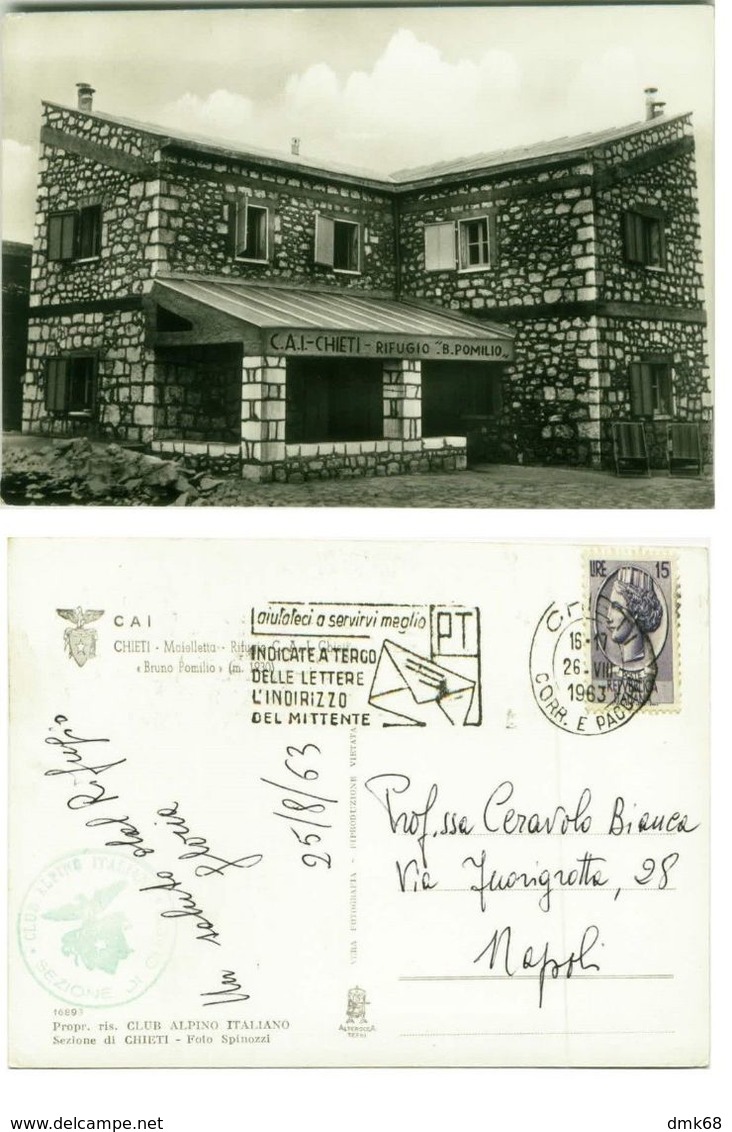 C.A.I.-CHIETI - RIFUGIO "B. POMILIO"
CAI
CHIETI - Maielletta - Rifugio C. A. I. Chieti
« Bruno Pomilio » (m. 1930)
aiutateci a servirvi meglio
PT
INDICATE A TERGO
DELLE LETTERE
L'INDIRIZZO
DEL MITTENTE
16-17
26-VIII
1963
CORR. E PACCHI
LIRE 15
Un saluto dal Rifugio
25/8/63
VERA FOTOGRAFIA - RIPRODUZIONE VIETATA
Prof.ssa Ceravolo Bianca
Via Fuorigrotta, 28
Napoli
CLUB ALPINO ITALIANO
SEZIONE DI CHIETI
16893
Propr. ris. CLUB ALPINO ITALIANO
Sezione di CHIETI - Foto Spinozzi
ALTEROCCA
TERNI
www.delcampe.net
dmk68